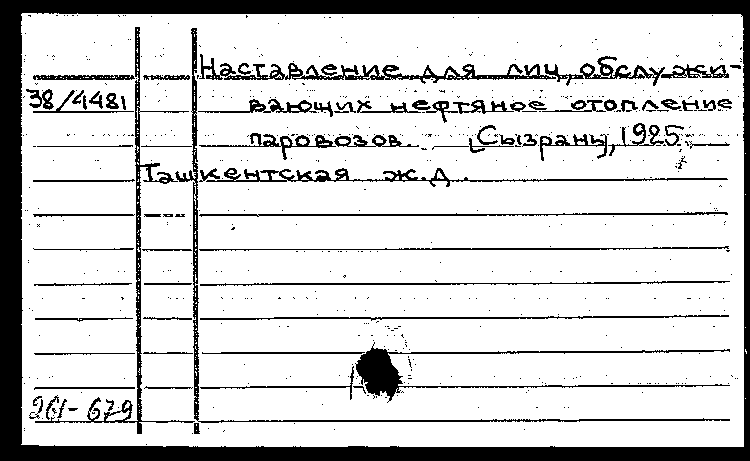 Наставление для лиц, обслужи-
38/4481 вающих нефтяное отопление
паровозов. [Сызрань], 1925.
Ташкентская ж.д.
261-679